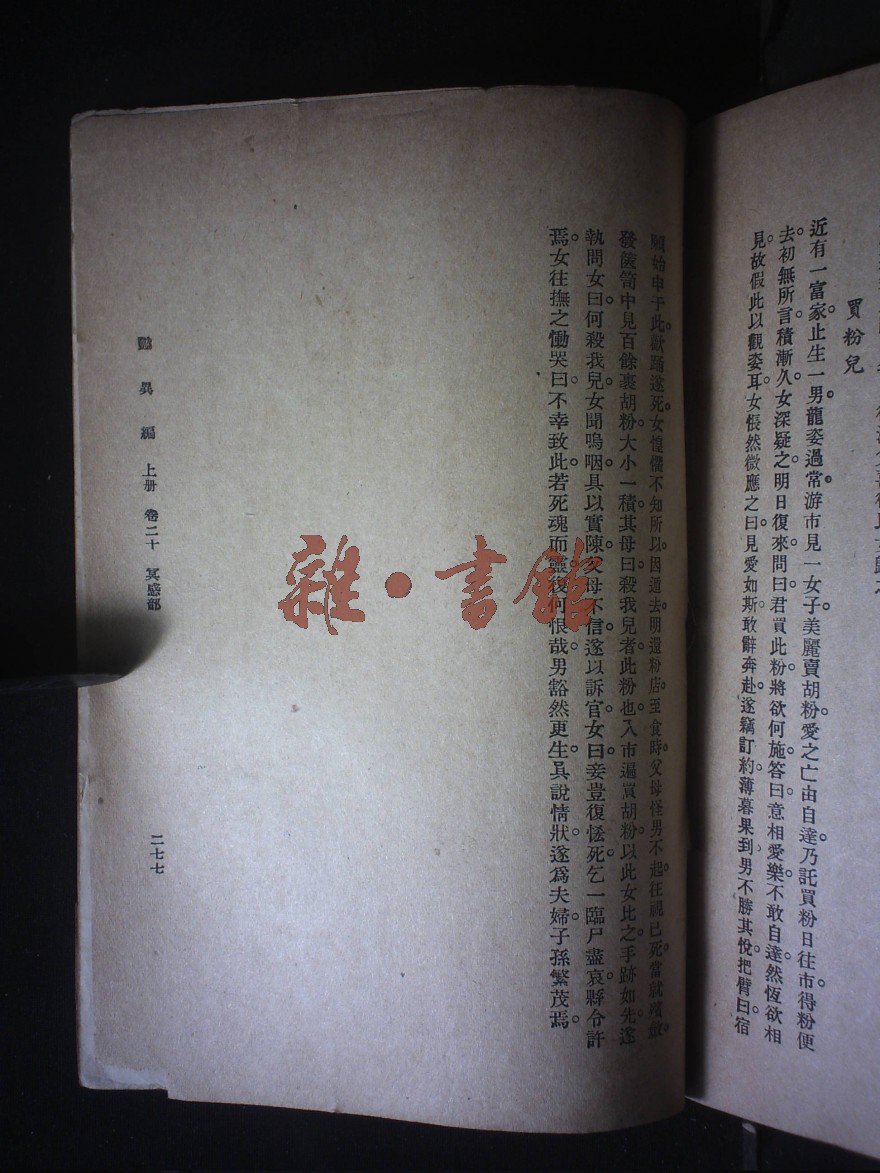 買粉兒
近有一富家。止生一男。龍姿過常。游市。見一女子美麗。賣胡粉。愛之。亡由自達。乃託買粉。日往市。得粉便
去。初無所言。積漸久。女深疑之。明日復來。問曰。君買此粉。將欲何施。答曰。意相愛樂。不敢自達。然恆欲相
見。故假此以觀姿耳。女悵然。微應之曰。見愛如斯。敢辭奔赴。遂竊訂約。薄暮果到。男不勝其悅。把臂曰。宿
願始申于此。歡踊遂死。女惶懼不知所以。因遁去。明還粉店。至食時。父母怪男不起。往視已死。當就殯斂。
發篋笥中。見百餘裹胡粉。大小一積。其母曰。殺我兒者此粉也。入市遍買胡粉。以此女比之。手跡如先。遂
執問女曰。何殺我兒。女聞嗚咽。具以實陳。父母不信。遂以訴官。女曰。妾豈復恡死。乞一臨尸盡哀。縣令許
焉。女往撫之慟哭曰。不幸致此。若死魂而靈。復何恨哉。男豁然更生。具說情狀。遂爲夫婦。子孫繁茂焉。
豔異編 上册 卷二十 冥感部
二七七
雜·書館